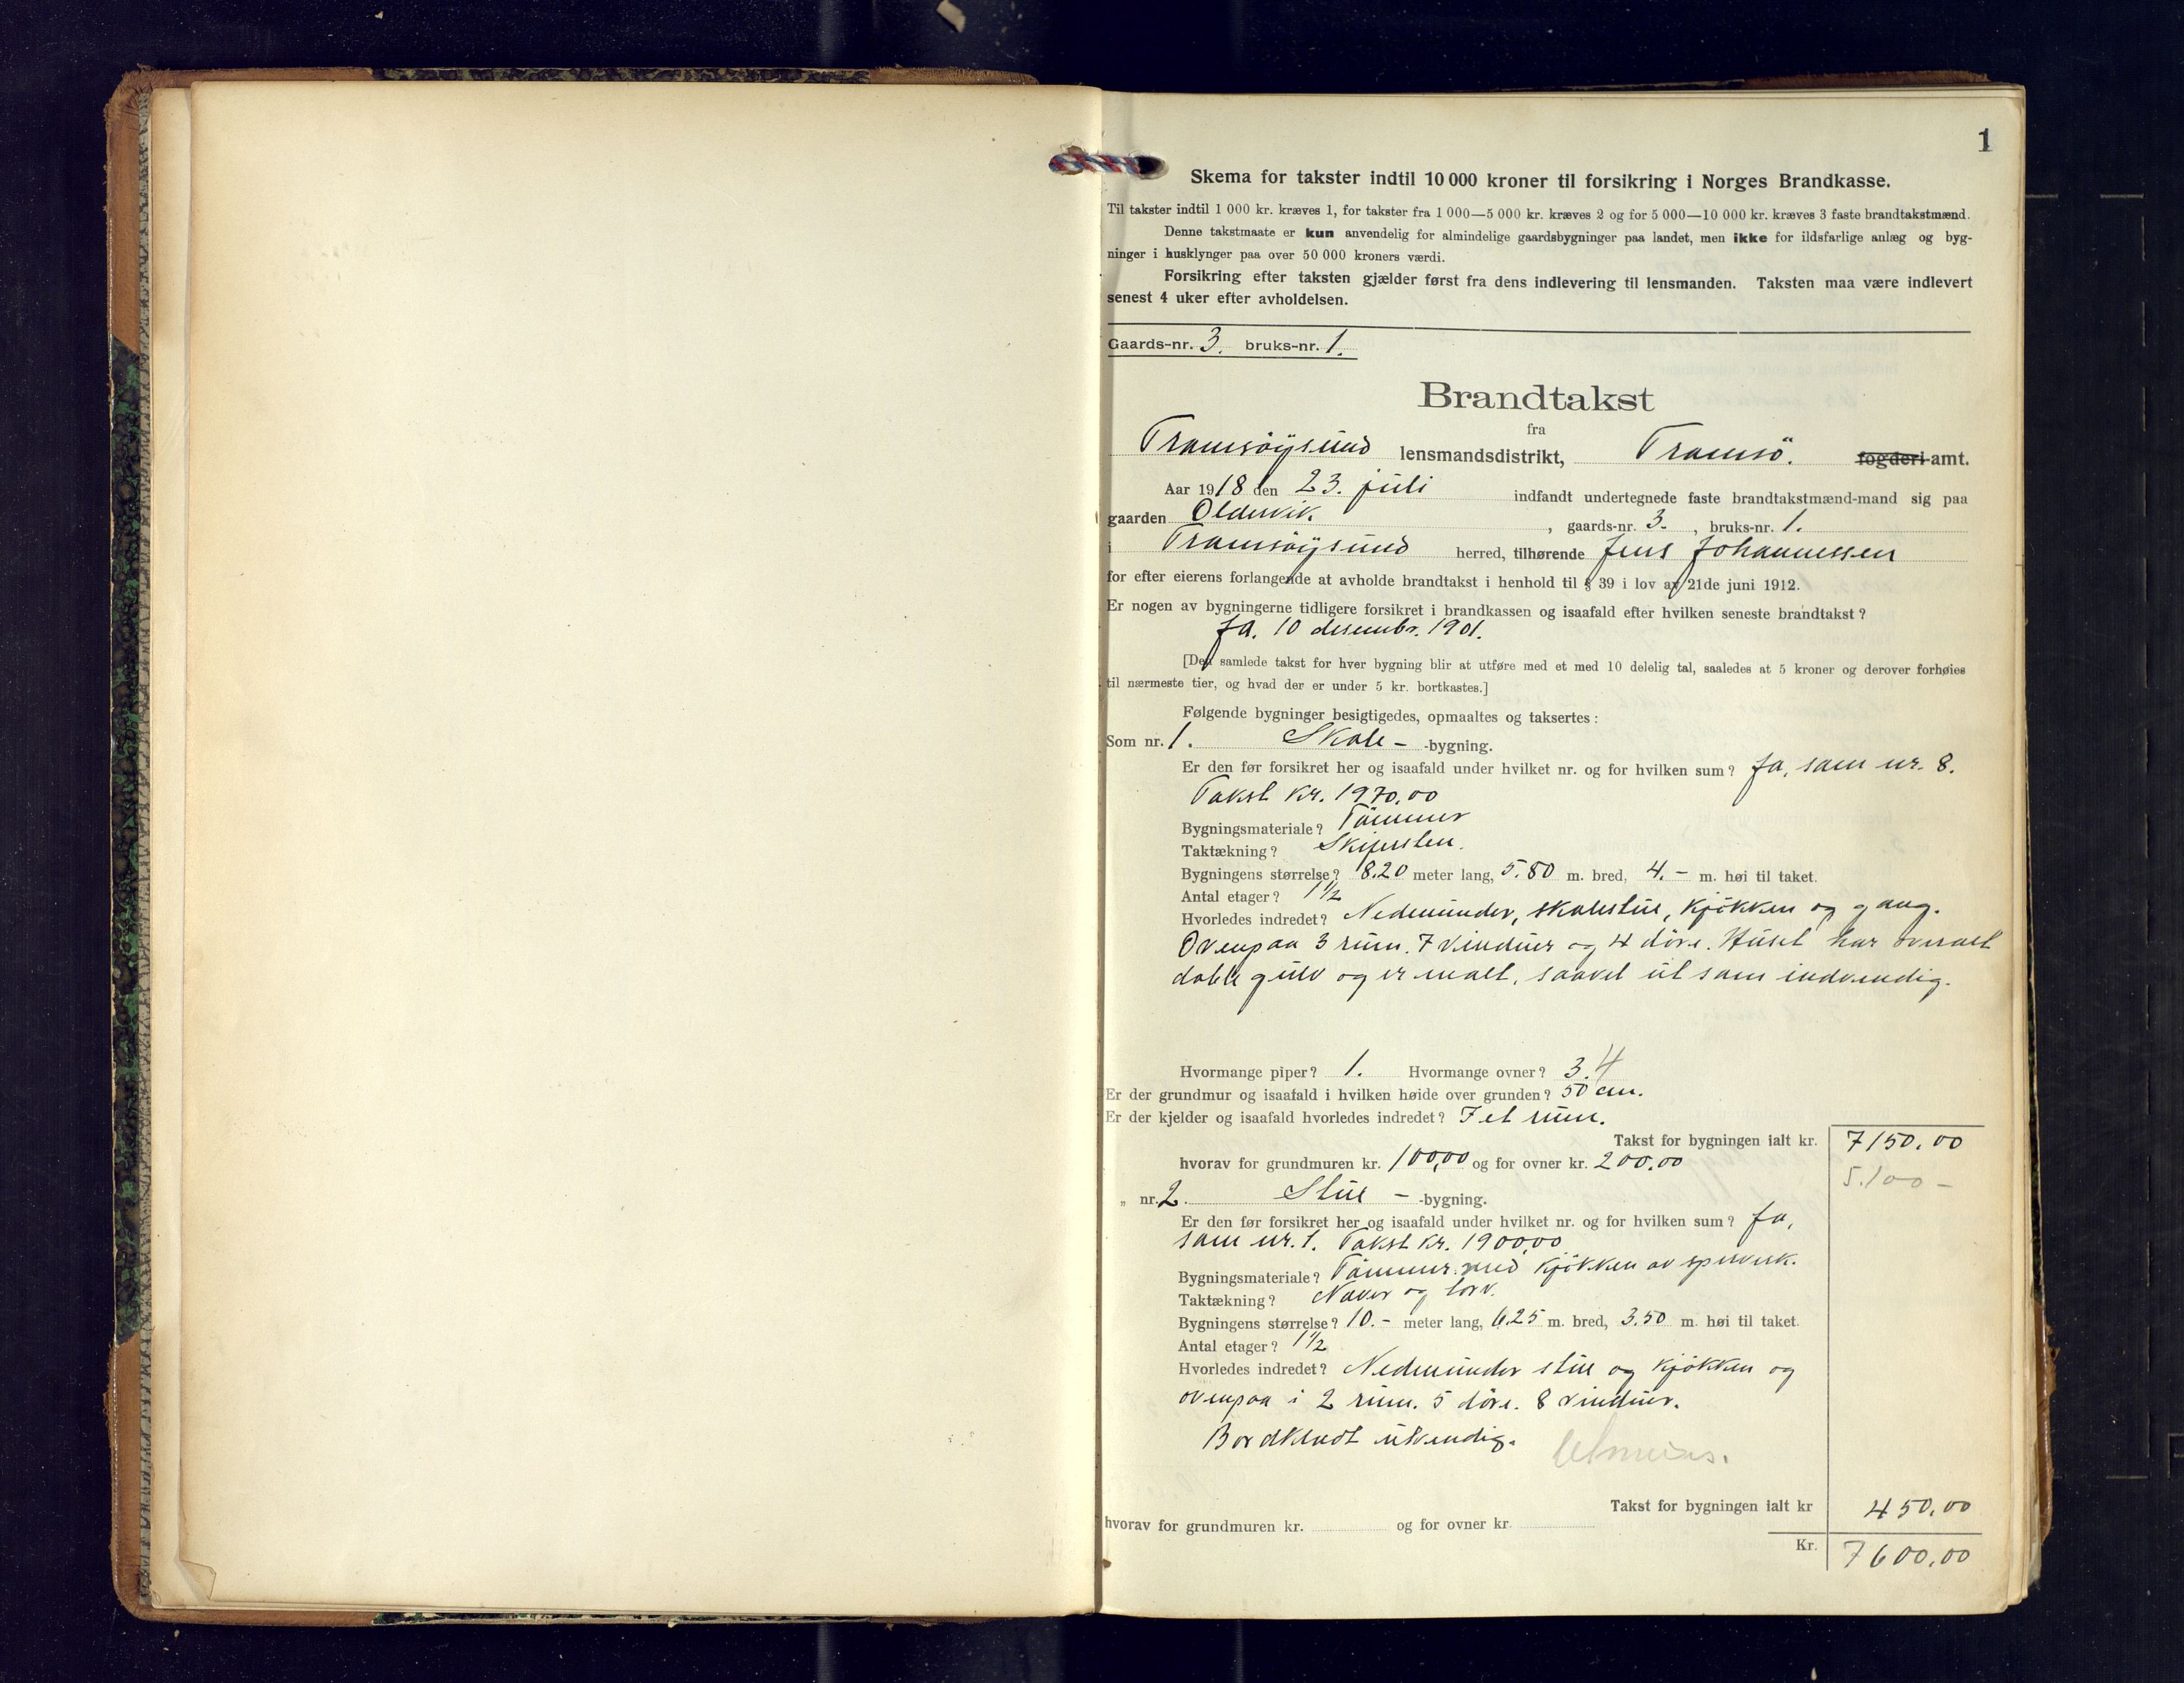 1
Skema for takster indtil 10 000 kroner til forsikring i Norges Brandkasse.
Til takster indtil 1 000 kr. kræves 1, for takster fra 1 000—5 000 kr. kræves 2 og for 5 000—10 000 kr. kræves 3 faste brandtakstmænd.
Denne takstmaate er kun anvendelig for almindelige gaardsbygninger paa landet, men ikke for ildsfarlige anlæg og byg-
ninger i husklynger paa over 50 000 kroners værdi.
Forsikring efter taksten gjælder først fra dens indlevering til lensmanden. Taksten maa være indlevert
senest 4 uker efter avholdelsen.
Gaards-nr. 3. bruks-nr. 1.
Brandtakst
fra
Tromsöysund lensmandsdistrikt, Tromsö. fogderi amt.
Aar 1918 den 23. juli indfandt undertegnede faste brandtakstmænd-mand sig paa
gaarden Oldervik. , gaards-nr. 3. , bruks-nr. 1.
i Tromsöysund herred, tilhørende Jens Johannessen
for efter eierens forlangende at avholde brandtakst i henhold til § 39 i lov av 21de juni 1912.
Er nogen av bygningerne tidligere forsikret i brandkassen og isaafald efter hvilken seneste brandtakst?
Ja. 10 desembr. 1901.
[Den samlede takst for hver bygning blir at utføre med et med 10 delelig tal, saaledes at 5 kroner og derover forhøies
til nærmeste tier, og hvad der er under 5 kr. bortkastes.]
Følgende bygninger besigtigedes, opmaaltes og taksertes:
Som nr. 1. Skole - -bygning.
Er den før forsikret her og isaafald under hvilket nr. og for hvilken sum? Ja, som nr. 8.
Takst kr. 1970.00
Bygningsmateriale? Tömmer
Taktækning? Skifersten.
Bygningens størrelse? 8.20 meter lang, 5.80 m. bred, 4.- m. høi til taket.
Antal etager? 1 1/2
Hvorledes indredet? Nedenunder, skolestue, kjökken og gang.
Ovenpaa 3 rum. 7 vinduer og 4 döre. Huset har overalt
doble gulv og er malt, saavel ut som indvendig.
Hvormange piper? 1. Hvormange ovner? 3. 4
Er der grundmur og isaafald i hvilken høide over grunden? 50 cm.
Er der kjelder og isaafald hvorledes indredet? I et rum.
Takst for bygningen ialt kr. 7150.00
hvorav for grundmuren kr. 100,00 og for ovner kr. 200.00
5.100 -
„ nr. 2. Stue - -bygning.
Er den før forsikret her og isaafald under hvilket nr. og for hvilken sum? Ja,
som nr. 1. Takst kr. 1900,00
Bygningsmateriale? Tömmer med kjökken av sperverk.
Taktækning? Næver og torv.
Bygningens størrelse? 10.- meter lang, 6.25 m. bred, 3.50 m. høi til taket.
Antal etager? 1 1/2
Hvorledes indredet? Nedenunder stue og kjökken og
ovenpaa i 2 rum. 5 döre. 8 vinduer.
Bordklædt utvendig.
Takst for bygningen ialt kr 450,00
hvorav for grundmuren kr. og for ovner kr.
Kr. 7600,00